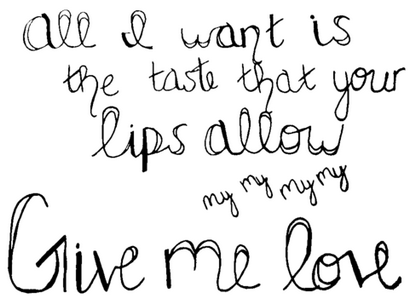 all I want is
the taste that your
lips allow
my my my my
Give me love